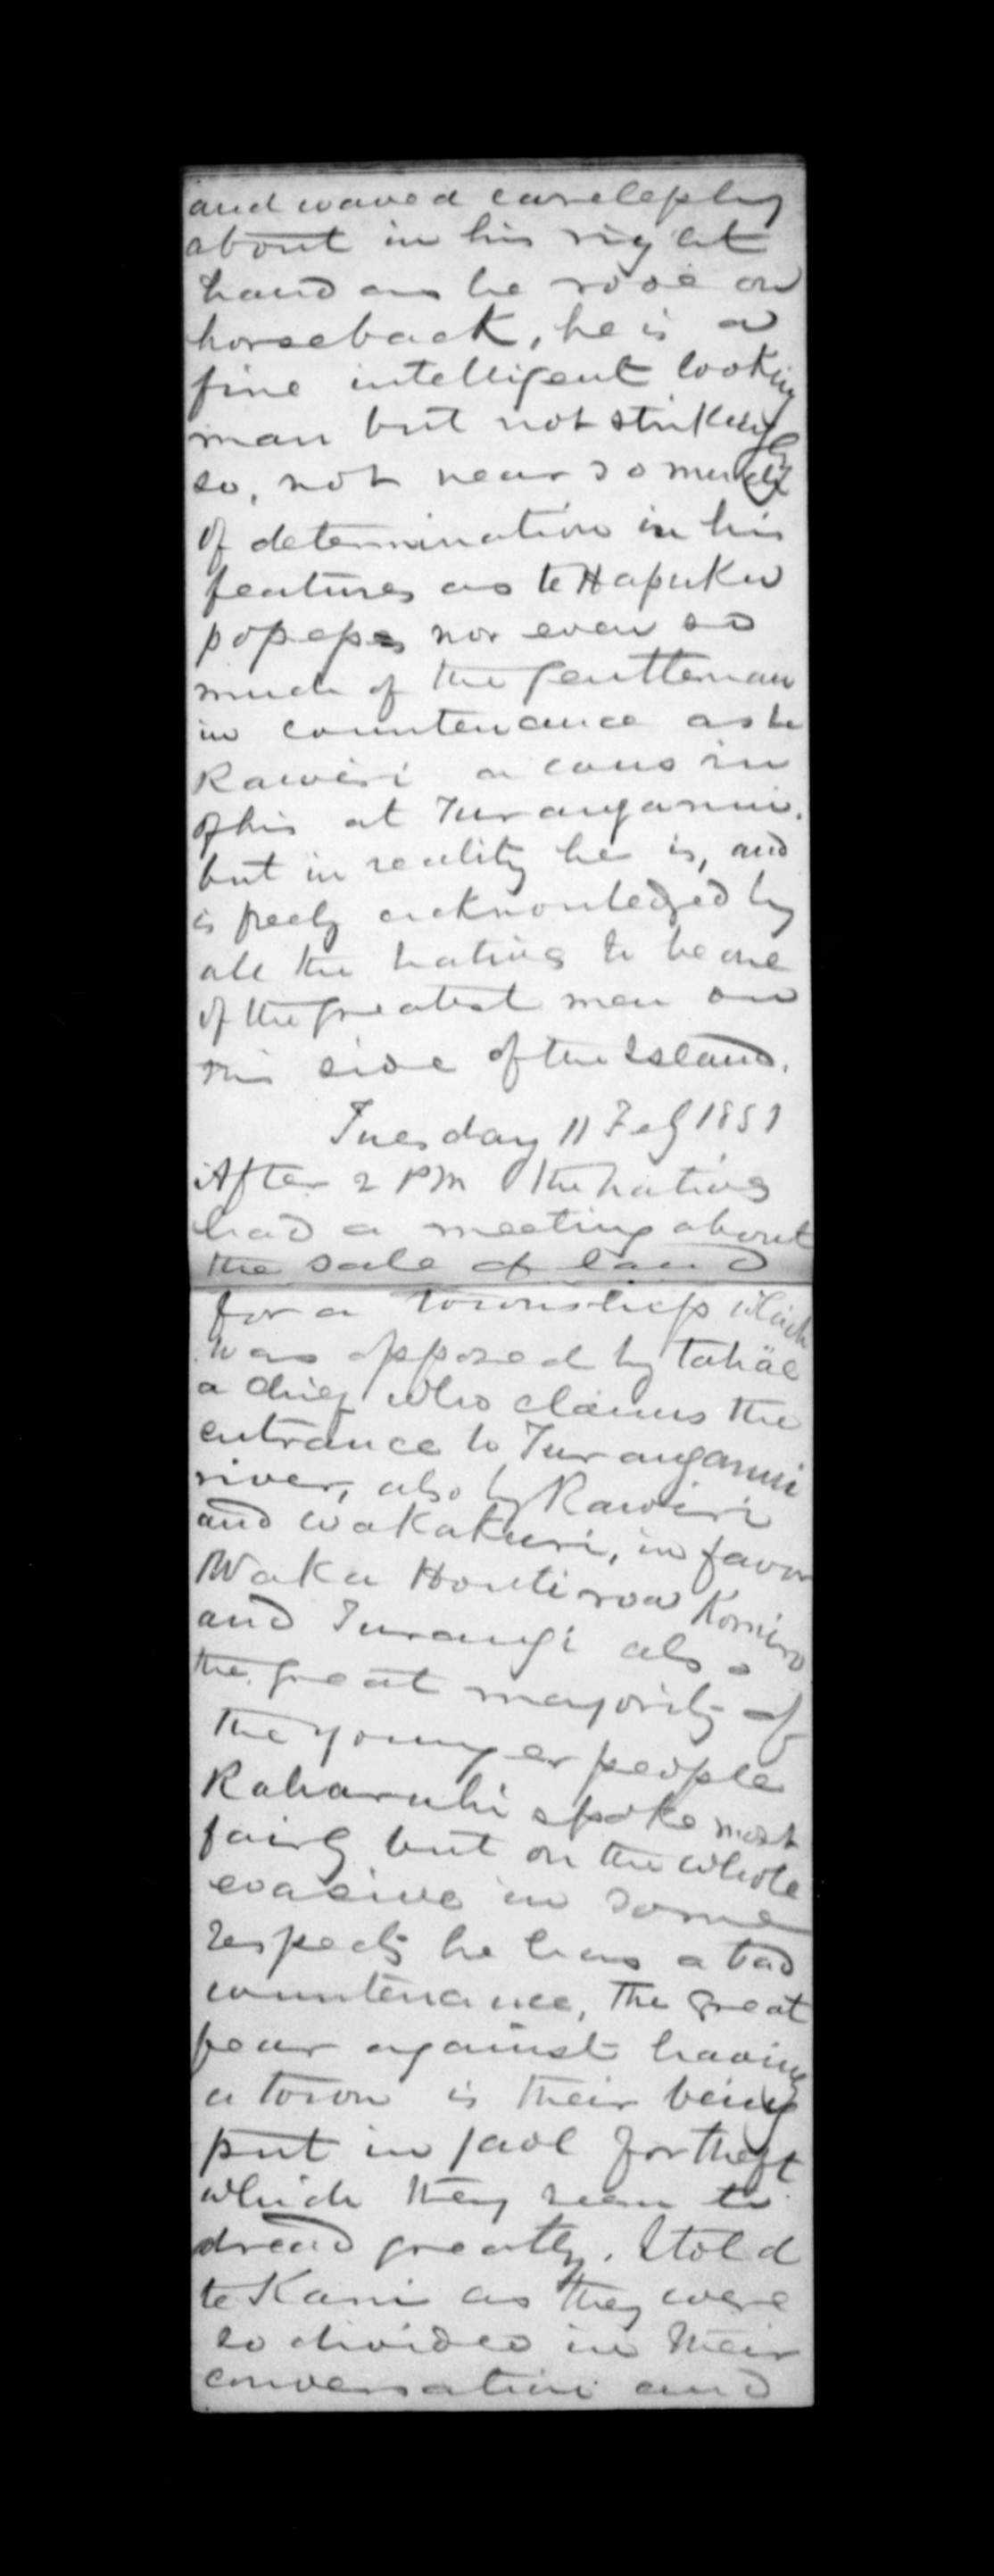 and waved carelessly
about in his right
hand as he rode on
horseback, he is a
fine intelligent looking
man but not strikingly
so, not near so much
of determination in his
features as te Hapuku
possesses nor even so
much of the gentleman
in countenance as te
Rawiri a cousin
of his at Turanganui.
but in reality he is, and
is freely acknowledged by
all the natives to be one
of the greatest men on
this side of the Island.
Tuesday 11 Feb 1851
After 2 PM the natives
had a meeting about
the sale of land
for a township which
was opposed by tahäe
a chief who claims the
entrance to Turanganui
river, also by Rawiri
and Wakakuri, in favor
Waka
and Turangi also
the great majority of
the younger people
Raharuhi spoke most
fairly but on the whole
evasive in some
respects he has a bad
countenance, The great
fear against having
a town is their being
put in jaol for theft
which they seem to
dread greatly. I told
te Kani as they were
so divided in their
conversation and